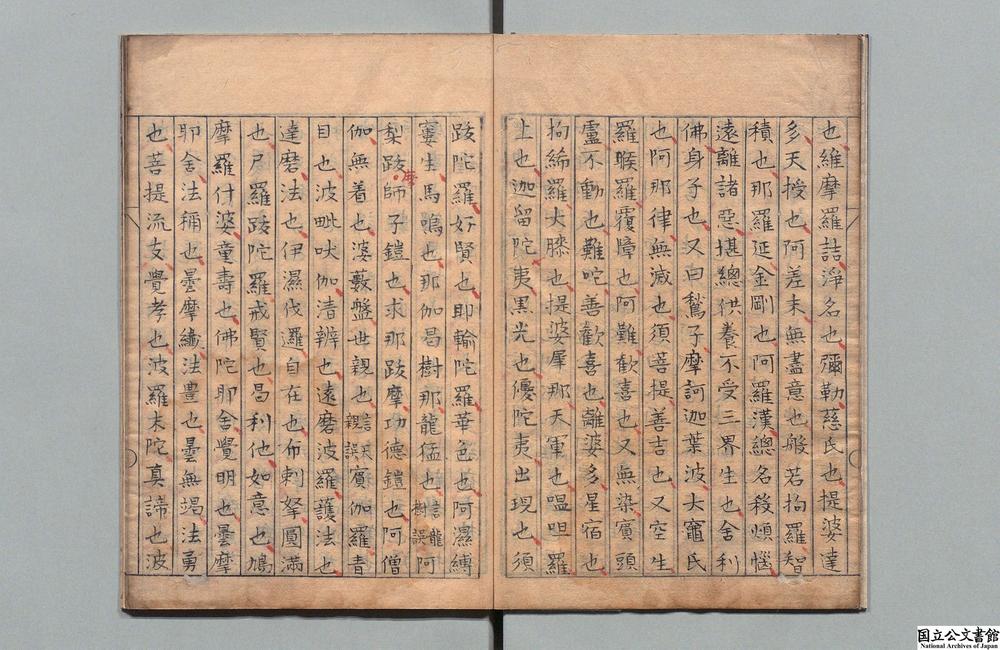 也維摩羅詰淨名也彌勒慈氏也提婆達
多天授也阿差末無盡意也般若拘羅智
積也那羅延金剛也阿羅漢總名殺煩惱
遠離諸惡堪總供養不受三界生也舍利
佛身子也又曰鶖子摩訶迦葉波大龜氏
也阿那律無滅也須菩提善吉也又空生
羅睺羅覆障也阿難歡喜也又無染賓頭
盧不動也難陀善歡喜也離婆多星宿也
拘絺羅大膝也提婆犀那天軍也嗢呾羅
上也迦留陀夷黒光也優陀夷出現也須
跋陀羅好賢也耶輸陀羅華色也阿濕縛
窶生馬鳴也那伽曷樹那龍猛也言龍樹誤阿
梨跋摩師子鎧也求那跋摩功德鎧也阿僧
伽無着也婆藪盤世親也言天親誤賓伽羅青
目也波毗吠伽清辨也達磨波羅護法也
達磨法也伊濕伐邏自在也布剌拏圓滿
也尸羅跋陀羅戒賢也曷利他如意也鳩
摩羅什婆童壽也佛陀耶舍覺明也曇摩
耶舍法稱也曇摩蟻法豊也曇無竭法勇
也菩提流支覺孝也波羅末陀真諦也波
国立公文書館
National Archives of Japan